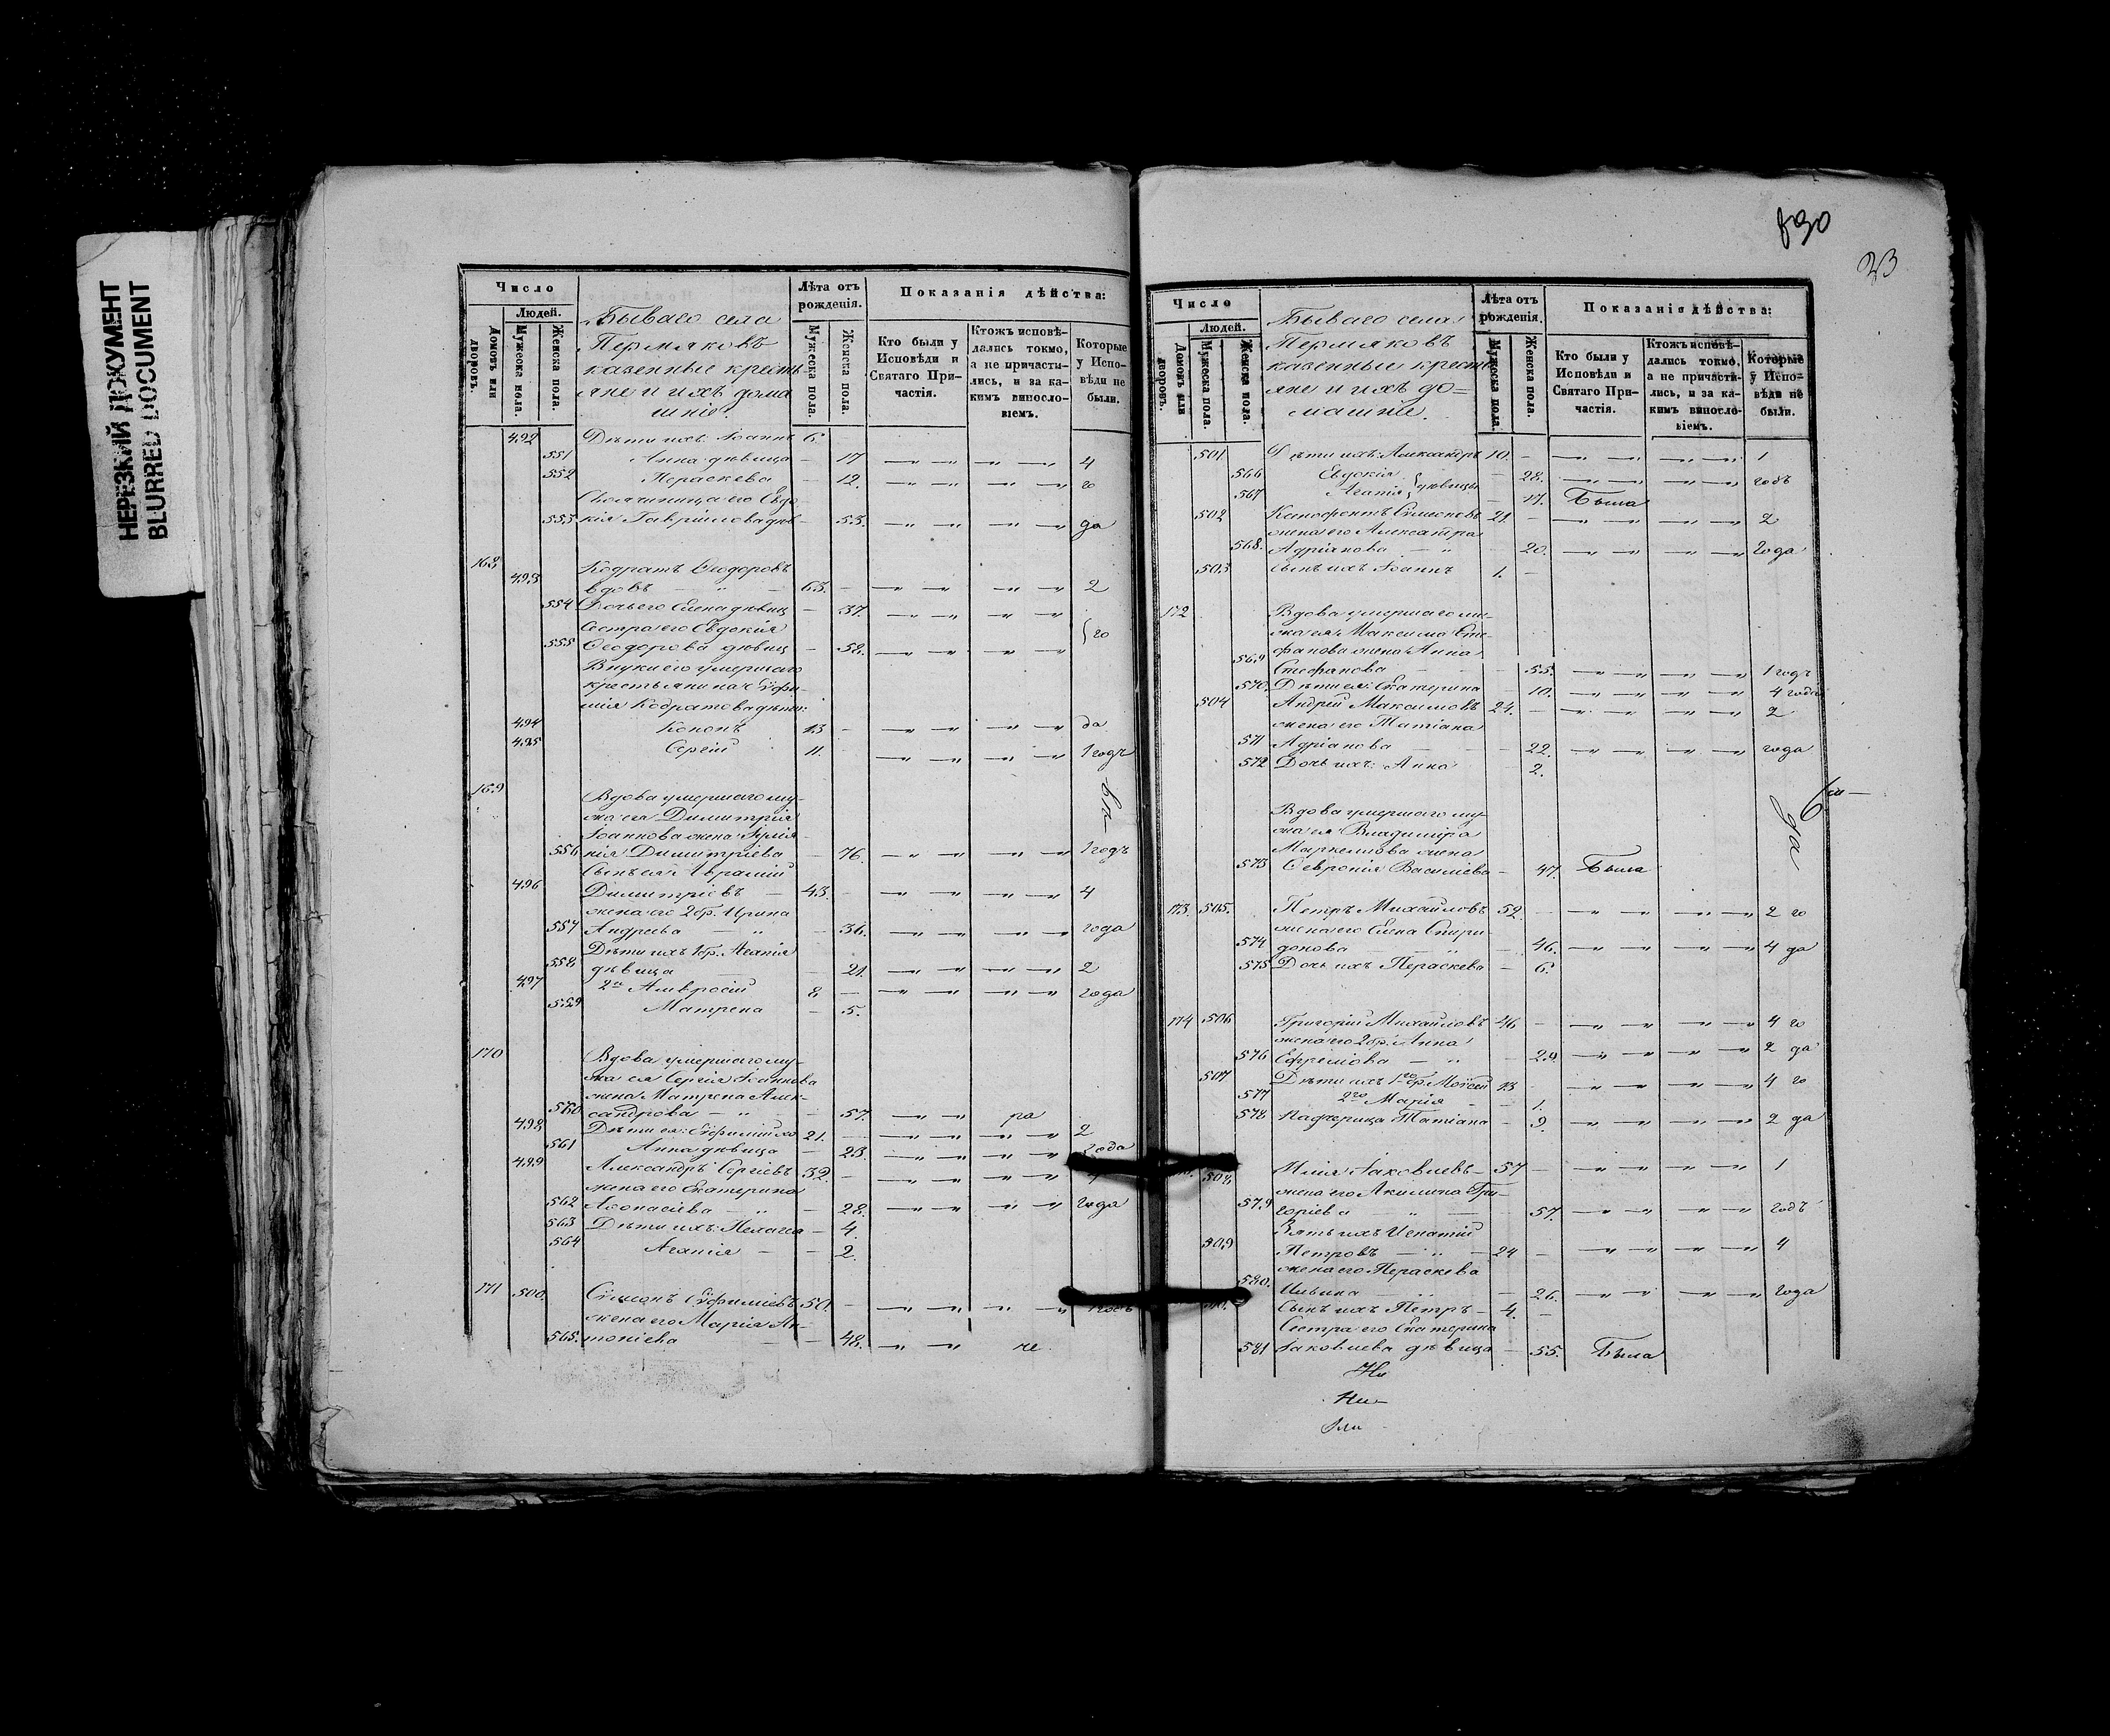 НЕРЕЗКИЙ ДОКУМЕНТ
BLURRED DOCUMENT
Число
Людей.
Домовъ или дворовъ.
Мужеска пола.
Женска пола.
Бываго села
Пермяковъ
казенные кресть
яне и ихъ дома
шніе
Лѣта отъ рожденія.
Мужеска пола.
Женска пола.
Показанія дѣйства:
Кто были у Исповѣди и Святаго Причастія.
Ктожъ исповѣ-
дались токмо,
а не причасти-
лись, и за ка-
кимъ винословіемъ.
Которые у Исповѣди не были.
492 Дѣти ихъ: Іоаннъ 6.
551 Анна дѣвица — 17 4
552 Параскева — 12. го
его Евдо
553 кія Гавріилова дѣв — 53. да
168
493 Кодратъ Ѳеодоровъ
вдовъ — 63. — 2
554 Дочь его Елена дѣвиц — 37.
Сестра его Евдокія го
555 Ѳеодорова дѣвиц — 58.
Внуки его умершаго
крестьянина Евфи-
мія Кодратова дѣти:
494 Кононъ 13 — да
495 Сергій 11. 1 годъ
169 Вдова умершаго му-
жа ея Димитрія
Іоаннова жена
556 кія Димитріева — 76. 1 годъ
Сынъ ея
496 Димитріевъ — 43. — 4
жена его 2 бр. Ирина
557 Андреева — 36. года
Дѣти ихъ 1 бр. Агапія
558 дѣвица — 21. 2
497 2го Амвросій 8 — года
559 Матрена — 5.
170 Вдова умершаго му-
жа ея Сергія Іоаннова
жена Матрена Алек-
560 сандрова — 57. ра
498 Дѣти ея: Евфимій хо 21. — 2
561 Анна дѣвица — 23. года
499 Александръ Сергіевъ 32. —
жена его Екатерина
562 Аѳонасіева — 28. года
563 Дѣти ихъ: Пелагея — 4.
564 Агапія — 2.
171 500 Сѵмеонъ Евфиміевъ 50 —
жена его Марія Ан-
565. тоніева — 48. не
890
23
Число
Людей.
Домовъ или дворовъ.
Мужеска пола.
Женска пола.
Бываго села
Пермяковъ
казенные кресть
яне и ихъ до=
машніе.
Лѣта отъ рожденія.
Мужеска пола.
Женска пола.
Показанія дѣйства:
Кто были у Исповѣди и Святаго Причастія.
Ктожъ исповѣ-
дались токмо,
а не причасти-
лись, и за ка-
кимъ винословіемъ.
Которые у Исповѣди не были.
501 Дѣти ихъ: Александръ 10. — 1
566 Евдокія — 28. годъ
567 Агапія дѣвицы — 17. Была
502 Ксенофонтъ Сѵмеоновъ 21. — 2
жена его Александра
568. Адріянова — 20. года
503 Сынъ ихъ Іоаннъ 1. —
172 Вдова умершаго му-
жа ея Максима Сте-
фанова жена Анна
569 Стефанова — 55. 1 годъ
570. Дѣти ея: Екатерина 10. 4 года
504 Андрей Максимовъ 24. — 2
жена его Татіана
571 Адріанова — 22. года
572 Дочь ихъ: Анна 2.
Вдова умершаго му-
жа ея Владиміра
Маркеллова жена
573 Ѳевронія Василіева — 47. Была
173 505. Петръ Михайловъ 52 — 2 го
жена его Елена Спири
574 донова — 46. 4 да
575 Дочь ихъ Параскева — 6.
174 506 Григорій Михайловъ 46 — 4 го
жена его 2 бр. Анна
576 Ефремова — 29 2 да
507 Дѣти ихъ 1го бр. Моѵсей 13 — 4 го
577 2го Марія — 1.
578 Падчерица Татіана — 9. 2 да
508. Илія Іаковлевъ — 57 — 1
жена его Акилина Гри-
579 горіева — 57. годъ
Зять ихъ Игнатій
509 Петровъ — 24 — 4
жена его Параскева
580. Ильина — 26. года
Сынъ ихъ Петръ — 4. —
Сестра его Екатерина
581 Іаковлева дѣвица — 55. Была